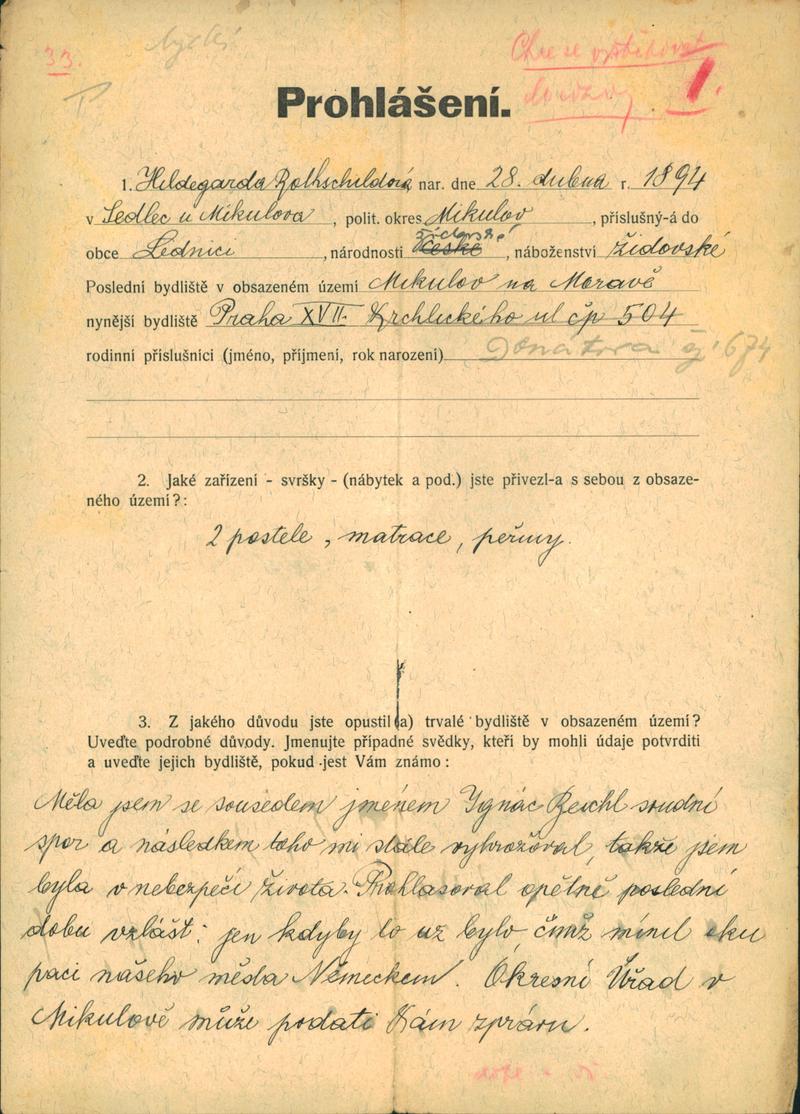 33.
Chce se vystěhovat
1.
Prohlášení.
1. Hildegarda Rothschildová nar. dne 28. dubna r. 1894
v Sedlec u Mikulova, polit. okres Mikulov, příslušný-á do
židovské
obce Lednici, národnosti české, náboženství židovské
Poslední bydliště v obsazeném území Mikulov na Moravě
nynější bydliště Praha XVII. Vrchlického ul čp 504
rodinní příslušníci (jméno, příjmení, rok narození) 674
2. Jaké zařízení - svršky - (nábytek a pod.) jste přivezl-a s sebou z obsaze-
ného území?:
2 postele, matrace, peřiny.
3. Z jakého důvodu jste opustil(a) trvalé bydliště v obsazeném území?
Uveďte podrobné důvody. Jmenujte případné svědky, kteří by mohli údaje potvrditi
a uveďte jejich bydliště, pokud jest Vám známo:
Měla jsem se sousedem jménem Ignác Reichl soudní
spor a následkem toho mi stále vyhrožoval, takže jsem
byla v nebezpečí života. Prohlasoval opětně poslední
dobu vzlášt: jen kdyby to uz bylo, čímž mínil oku
paci našeho města Německem. Okresní Úřad v
Mikulově může podati Vám zprávu.